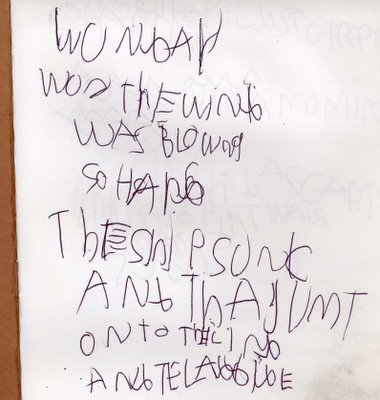 WUNDAY
WON THEWIND
WAS BLOWNG
SO HARD
THESHIPSUNC
AND THAJUMT
ONTO THELIND
AND